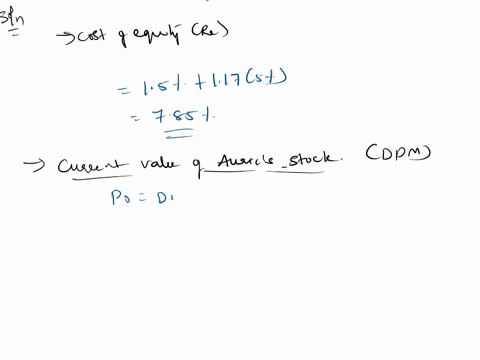 Sqn
→ Cost of equity (Re)
= 1.5% + 1.17 (5%)
= 7.85%
→ Current value of Auericle stock. (DDM)
P0 = D1